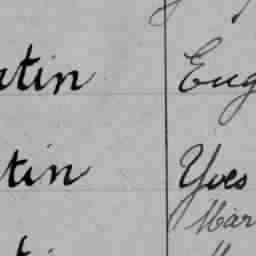 tin Eug
tin Yves
Mar